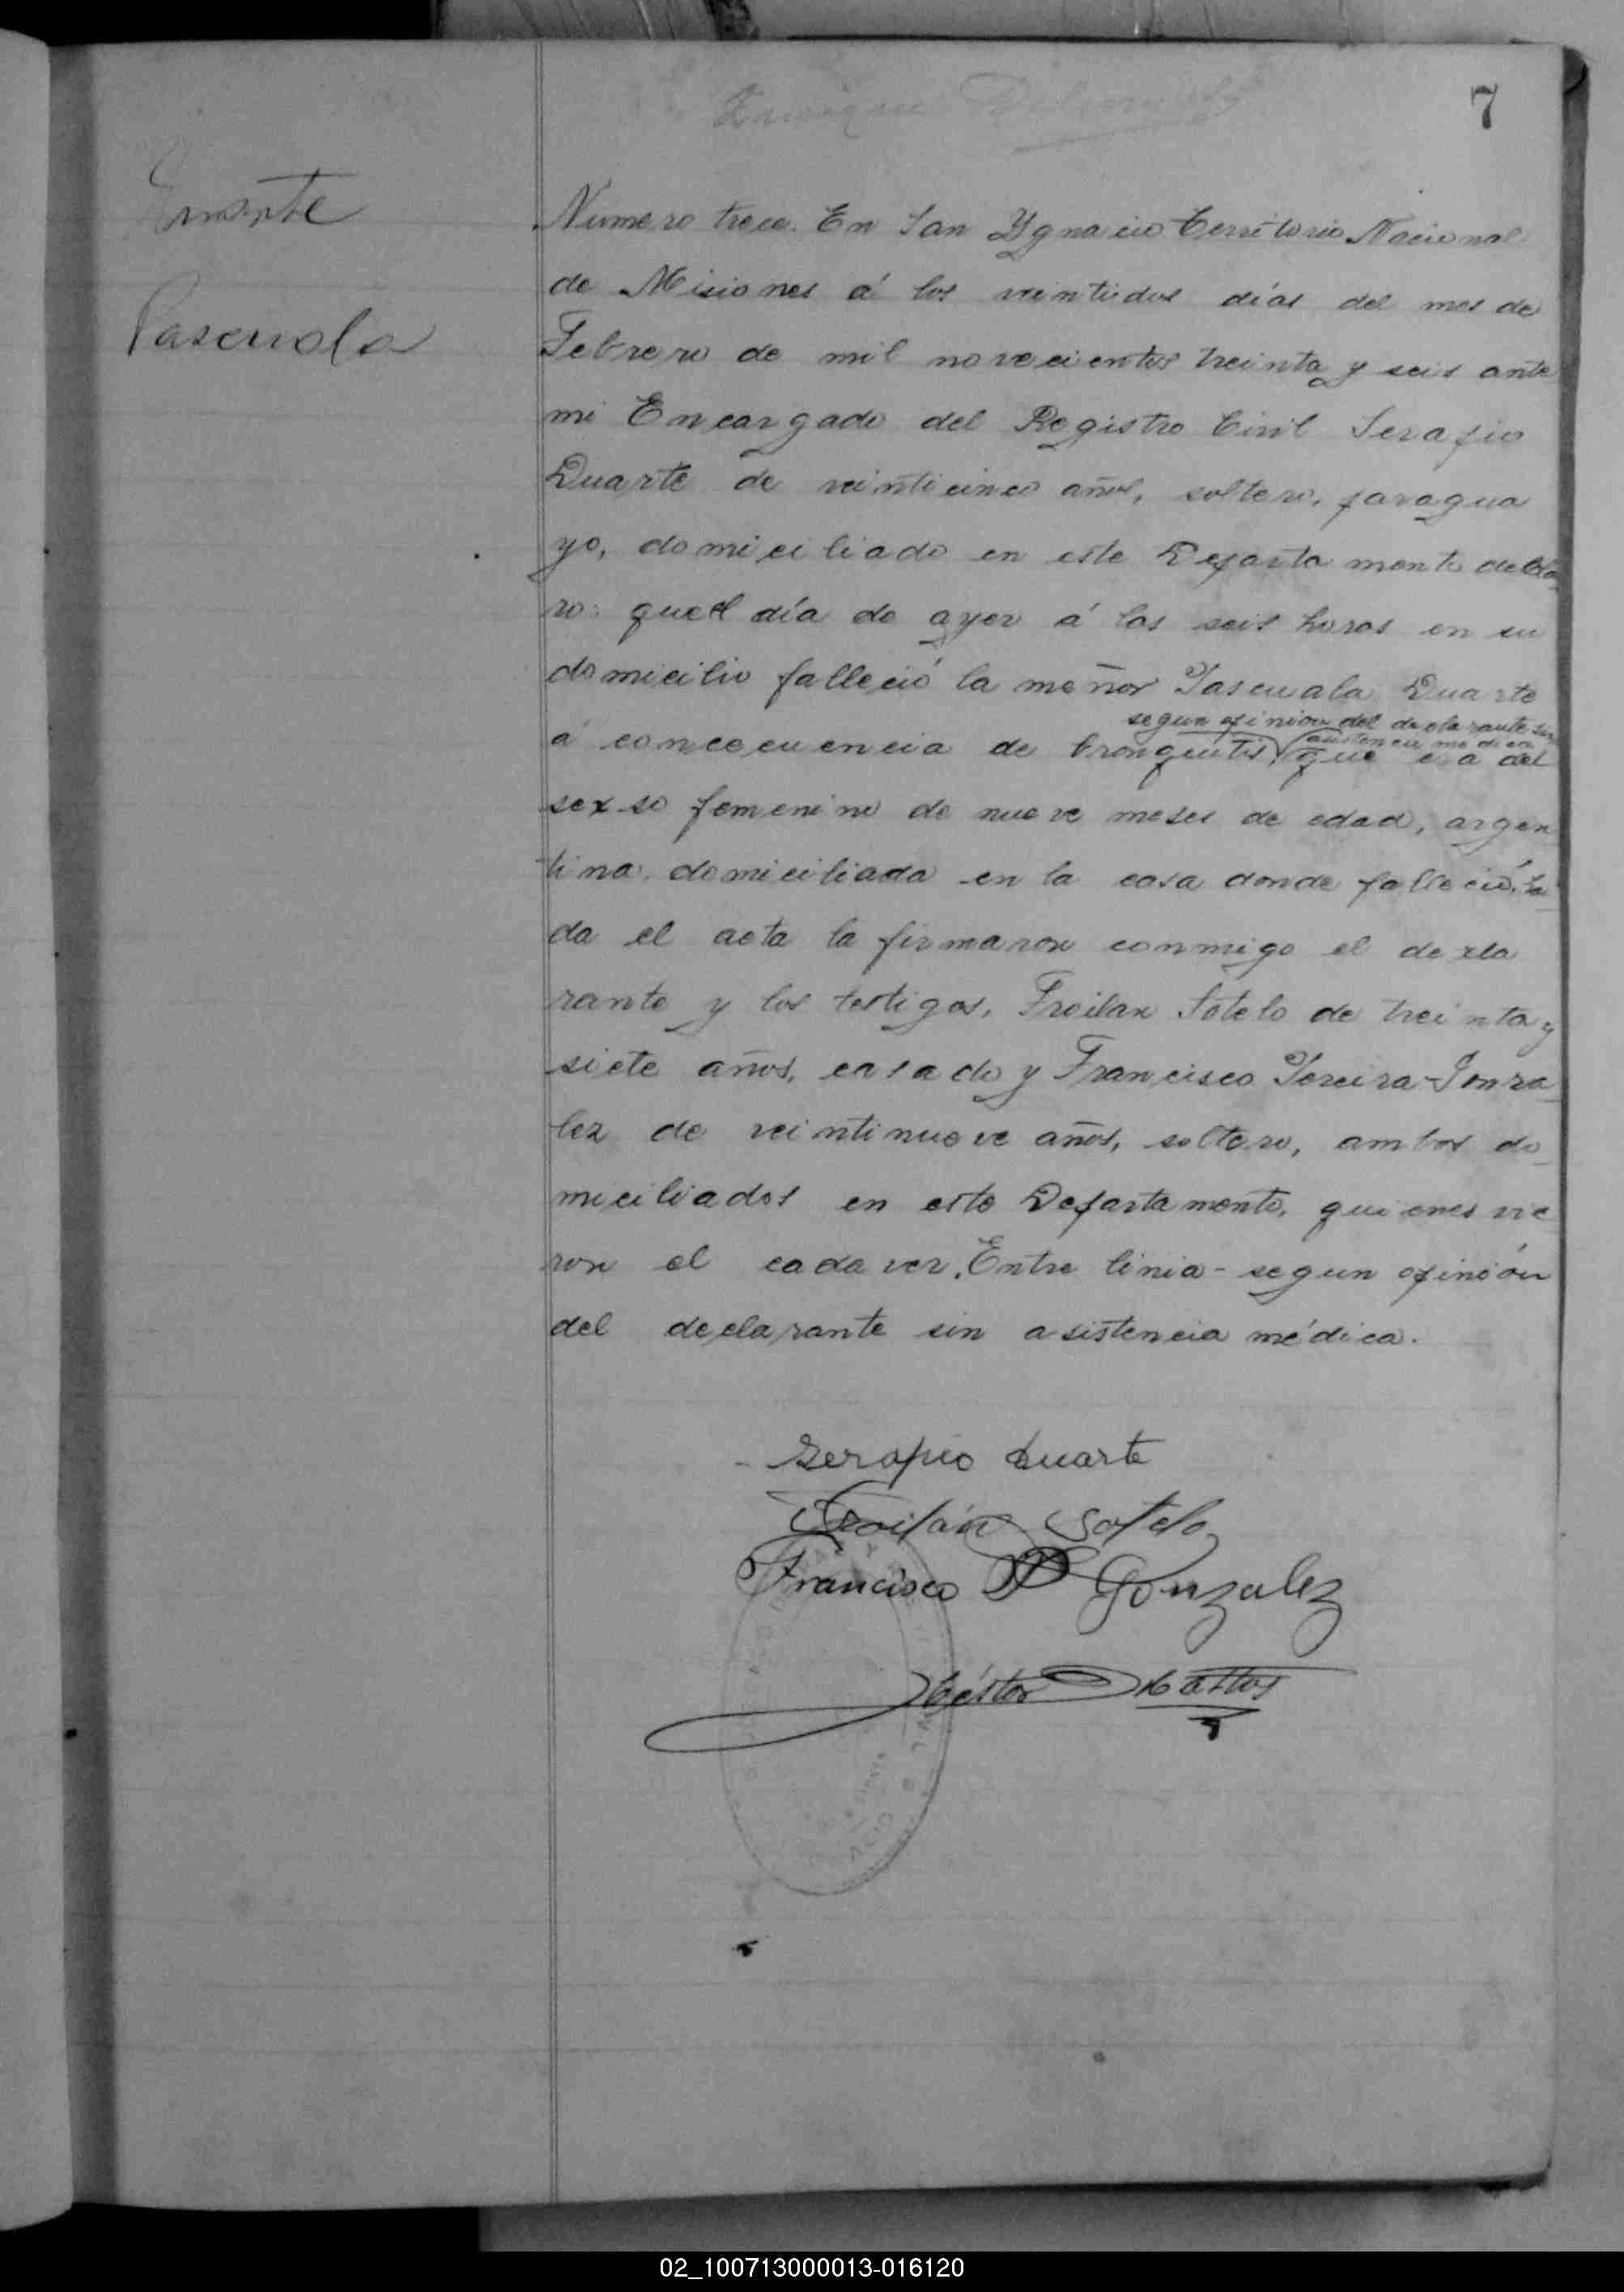 7
Duarte
Pascuala
Numero trece. En San Ygnacio Territorio Nacional
de Misiones á los veintidos días del mes de
Febrero de mil novecientos treinta y seis ante
mi Encargado del Registro Civil Serapio
Duarte de veinticinco años, soltero, paragua
yo, domiciliado en este Departamento decla
ro: que el día de ayer á las seis horas en su
domicilio falleció la meñor Pascuala Duarte
segun opinion del declarante sin
asistencia medica
á concecuencia de bronquitis que era del
sexso femenino de nueve meses de edad, argen
tina, domiciliada en la casa donde falleció. Lei
da el acta la firmaron conmigo el decla
rante y los testigos, Froilan Sotelo de treinta y
siete años, casado y Francisco Pereira Gonza
lez de veintinueve años, soltero, ambos do
miciliados en este Departamento, quienes vie
ron el cadaver. Entre linia - segun opinión
del declarante sin asistencia médica.
Serapio Duarte
Froilán Sotelo
Francisco P Gonzalez
Héstor
02_100713000013-016120